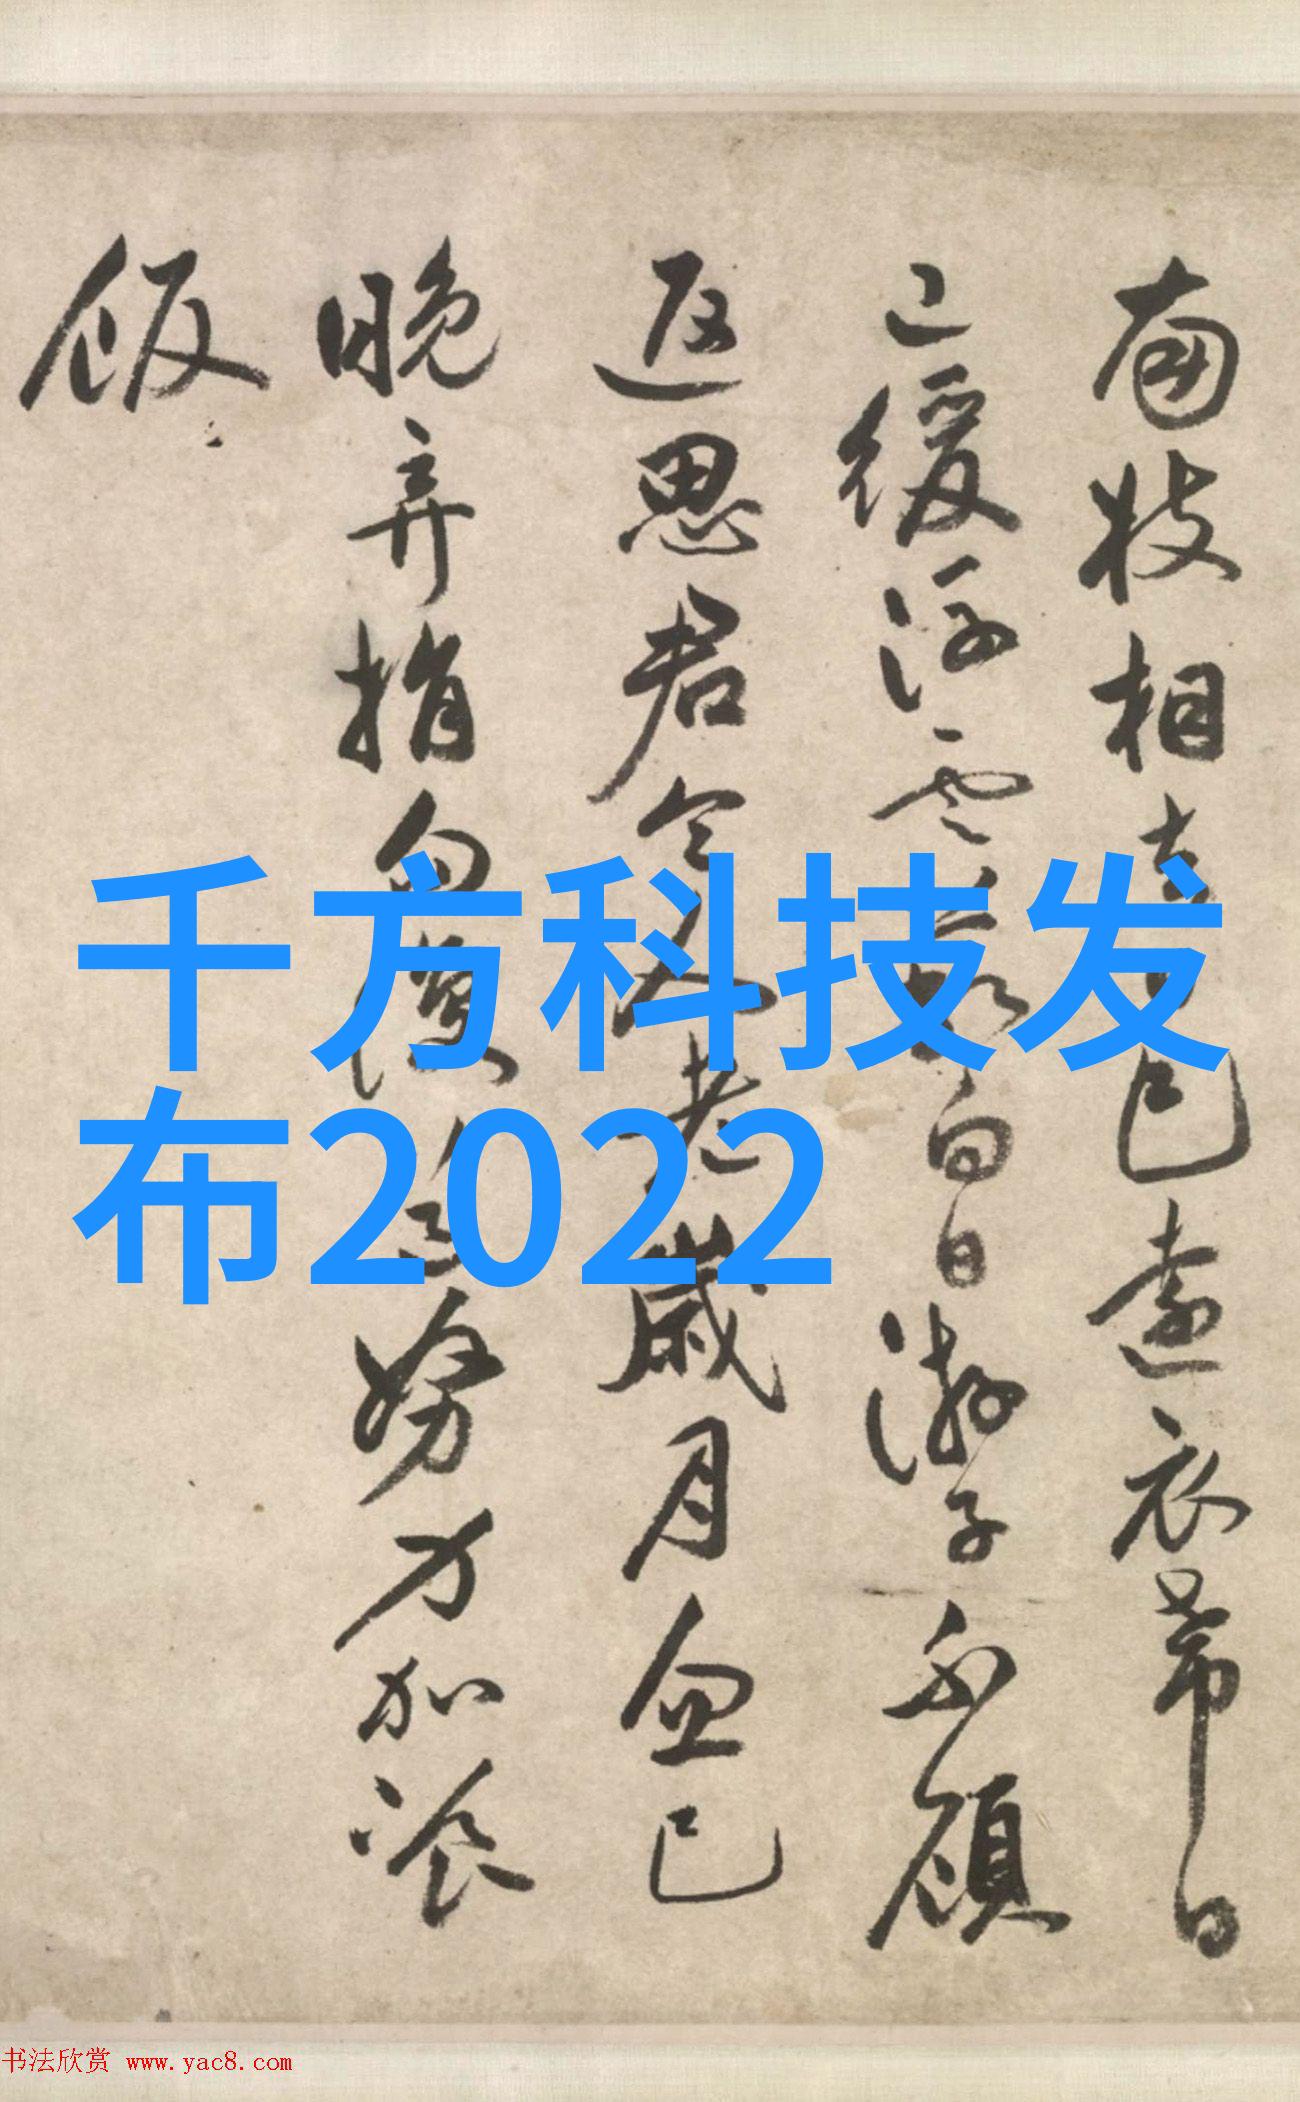 南枝相去已遠衣帶日
已緩浮雲蔽白日游子不顧
返思君令人老歲月忽已
晚弃捐勿復道努力加飡
飯
千方科技发
布2022
书法欣赏 www.yac8.com